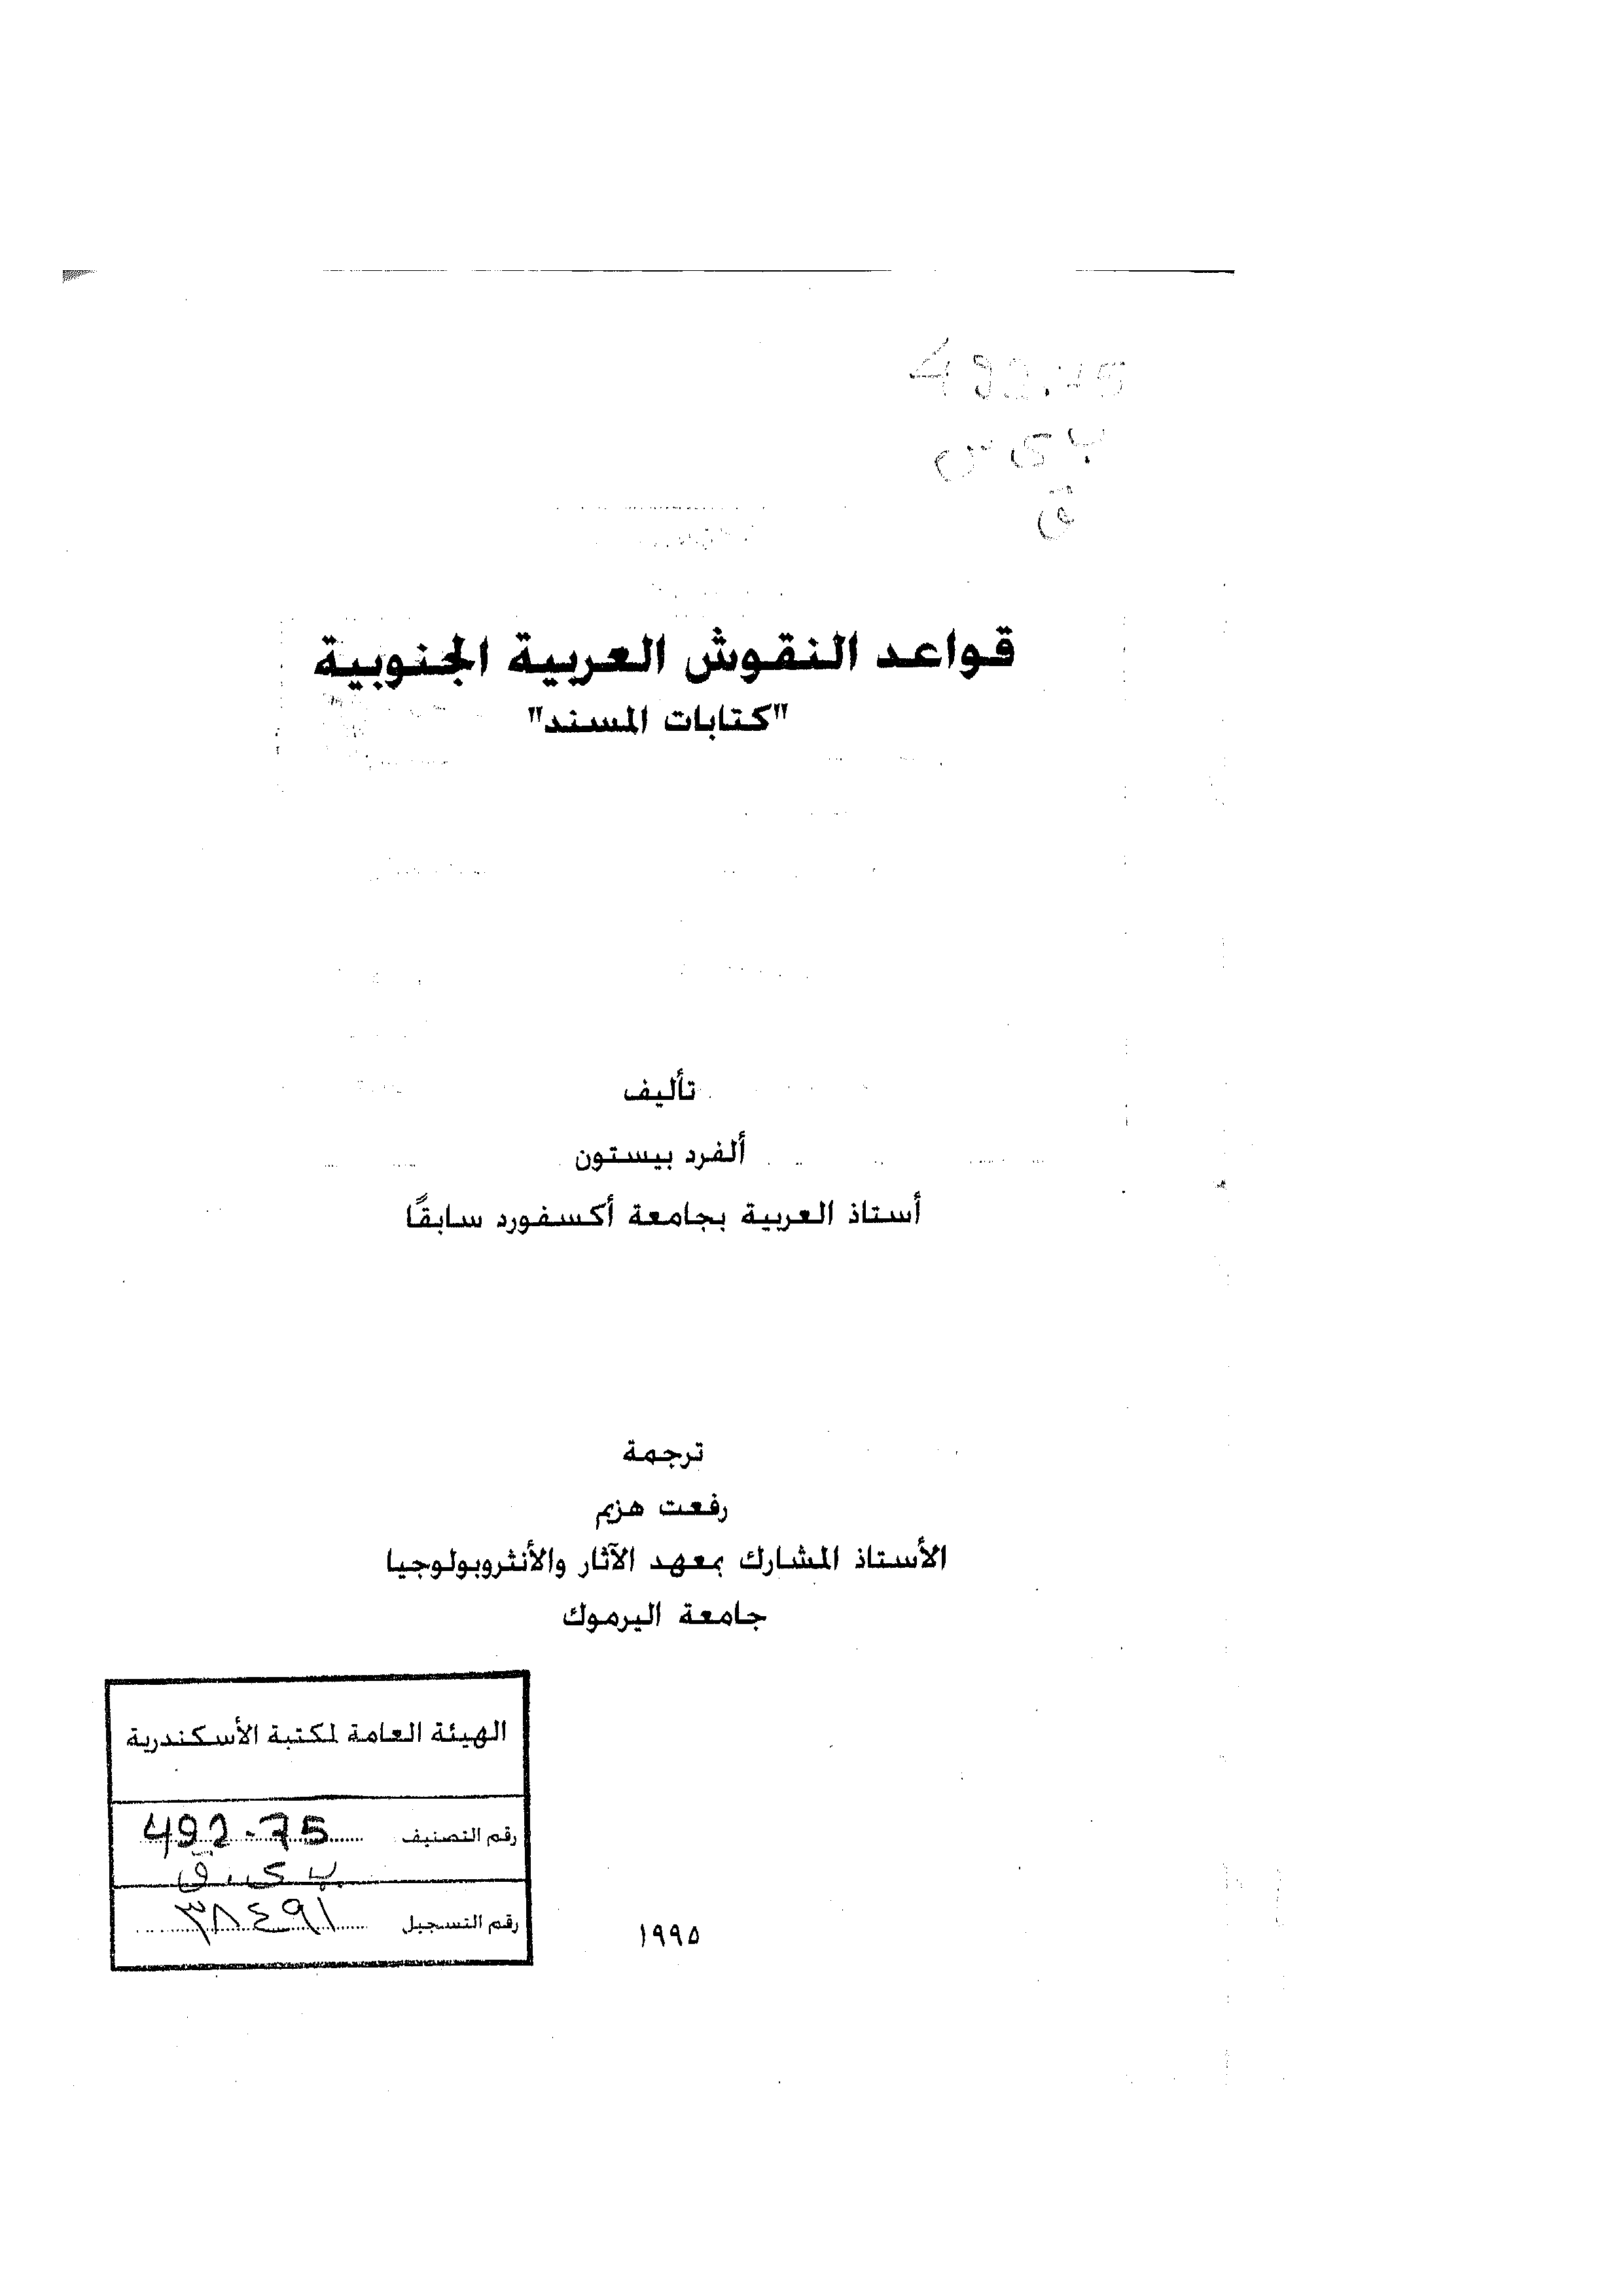 492.75
ب ي س
ق
قواعد النقوش العربية الجنوبية
"كتابات المسند"
تأليف
ألفرد بيستون
أستاذ العربية بجامعة أكسفورد سابقًا
ترجمة
رفعت هزيم
الأستاذ المشارك بمعهد الآثار والأنثروبولوجيا
جامعة اليرموك
الهيئة العامة لمكتبة الأسكندرية
رقم التصنيف 492.75
رقم التسجيل ٣٨٤٩١
١٩٩٥